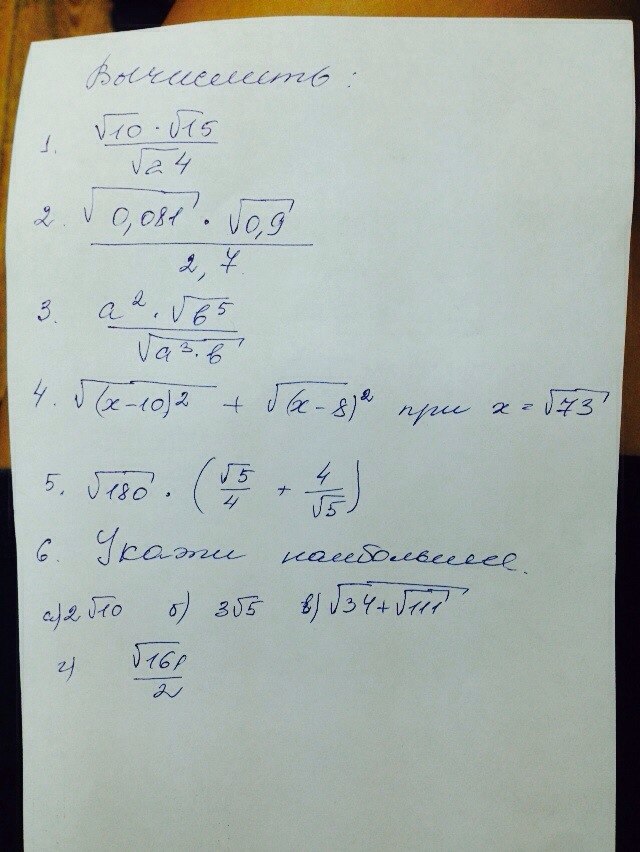 Вычислить:
1. √10 · √15 / √24
2. √0,081 · √0,9 / 2,7
3. a² · √b⁵ / √a³·b
4. √(x-10)² + √(x-8)² при x = √73
5. √180 · (√5/4 + 4/√5)
6. Укажи наибольшее.
а) 2√10 б) 3√5 в) √34+√111
г) √161/2